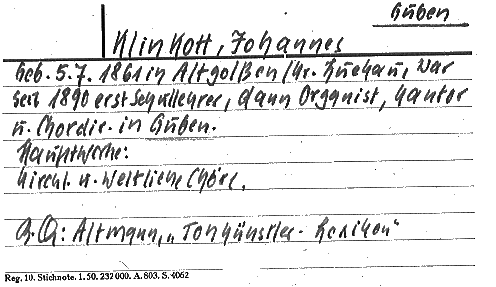 Guben
Klinkott, Johannes
Geb. 5.7. 1861 in Altgolßen/Kr. Luckau, war
seit 1890 erst Schullehrer, dann Organist, Kantor
u. Chordir. in Guben.
Hauptwerke:
Kirchl. u. weltliche Chöre.
B.Q.: Altmann, „Tonkünstler-Lexikon"
Reg. 10. Stichnote. 1. 50. 232000. A. 803. S. 4062